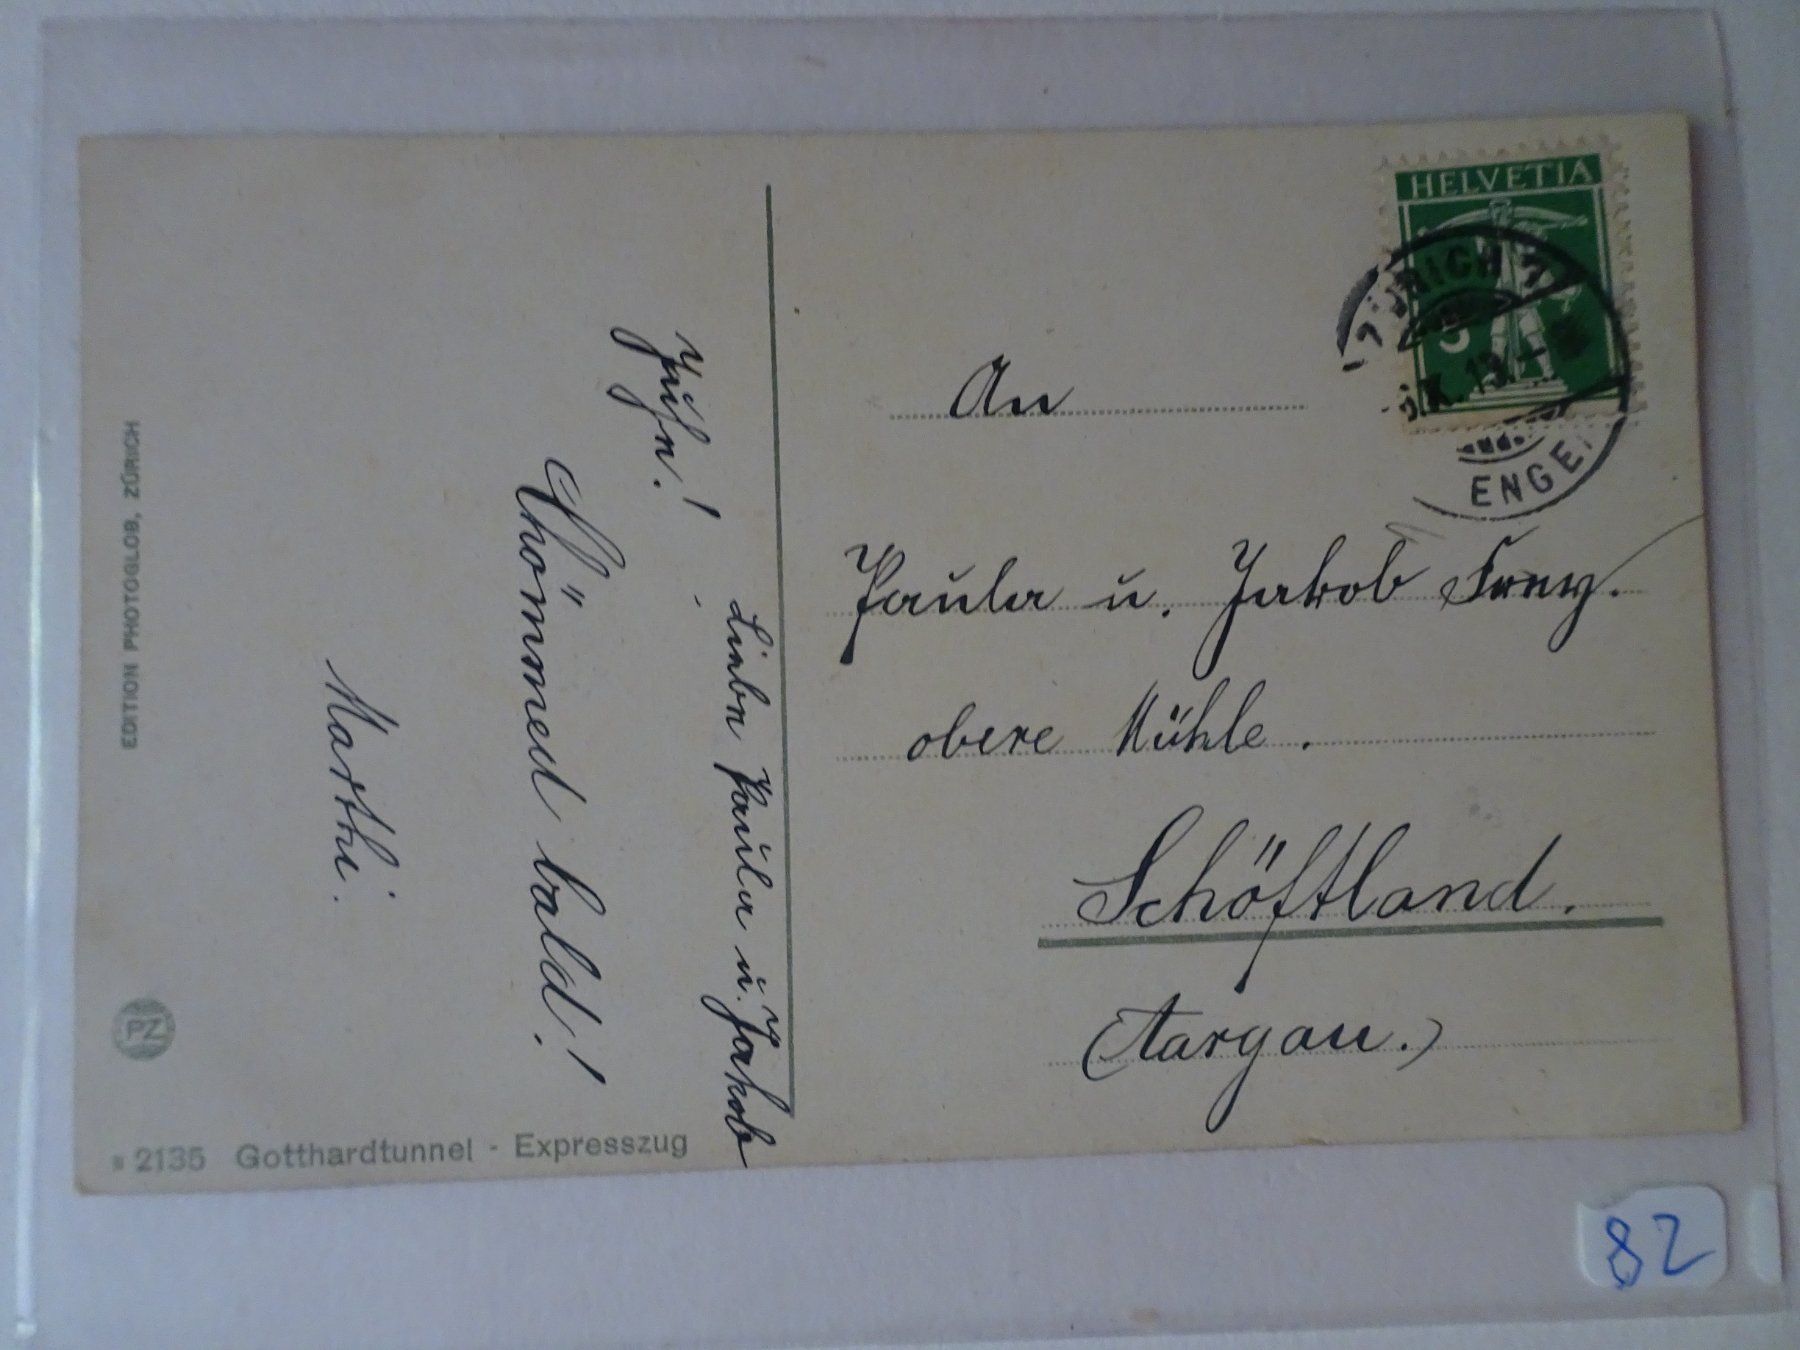 HELVETIA
5
ZÜRICH
X. 13.
ENGE
An
Paula u. Jakob Frey.
obere Mühle.
Schöftland.
(Aargau.)
Liebe Paula u. Jakob
Chömmed bald!
Marthi.
EDITION PHOTOGLOB, ZÜRICH
PZ
2135 Gotthardtunnel - Expresszug
82